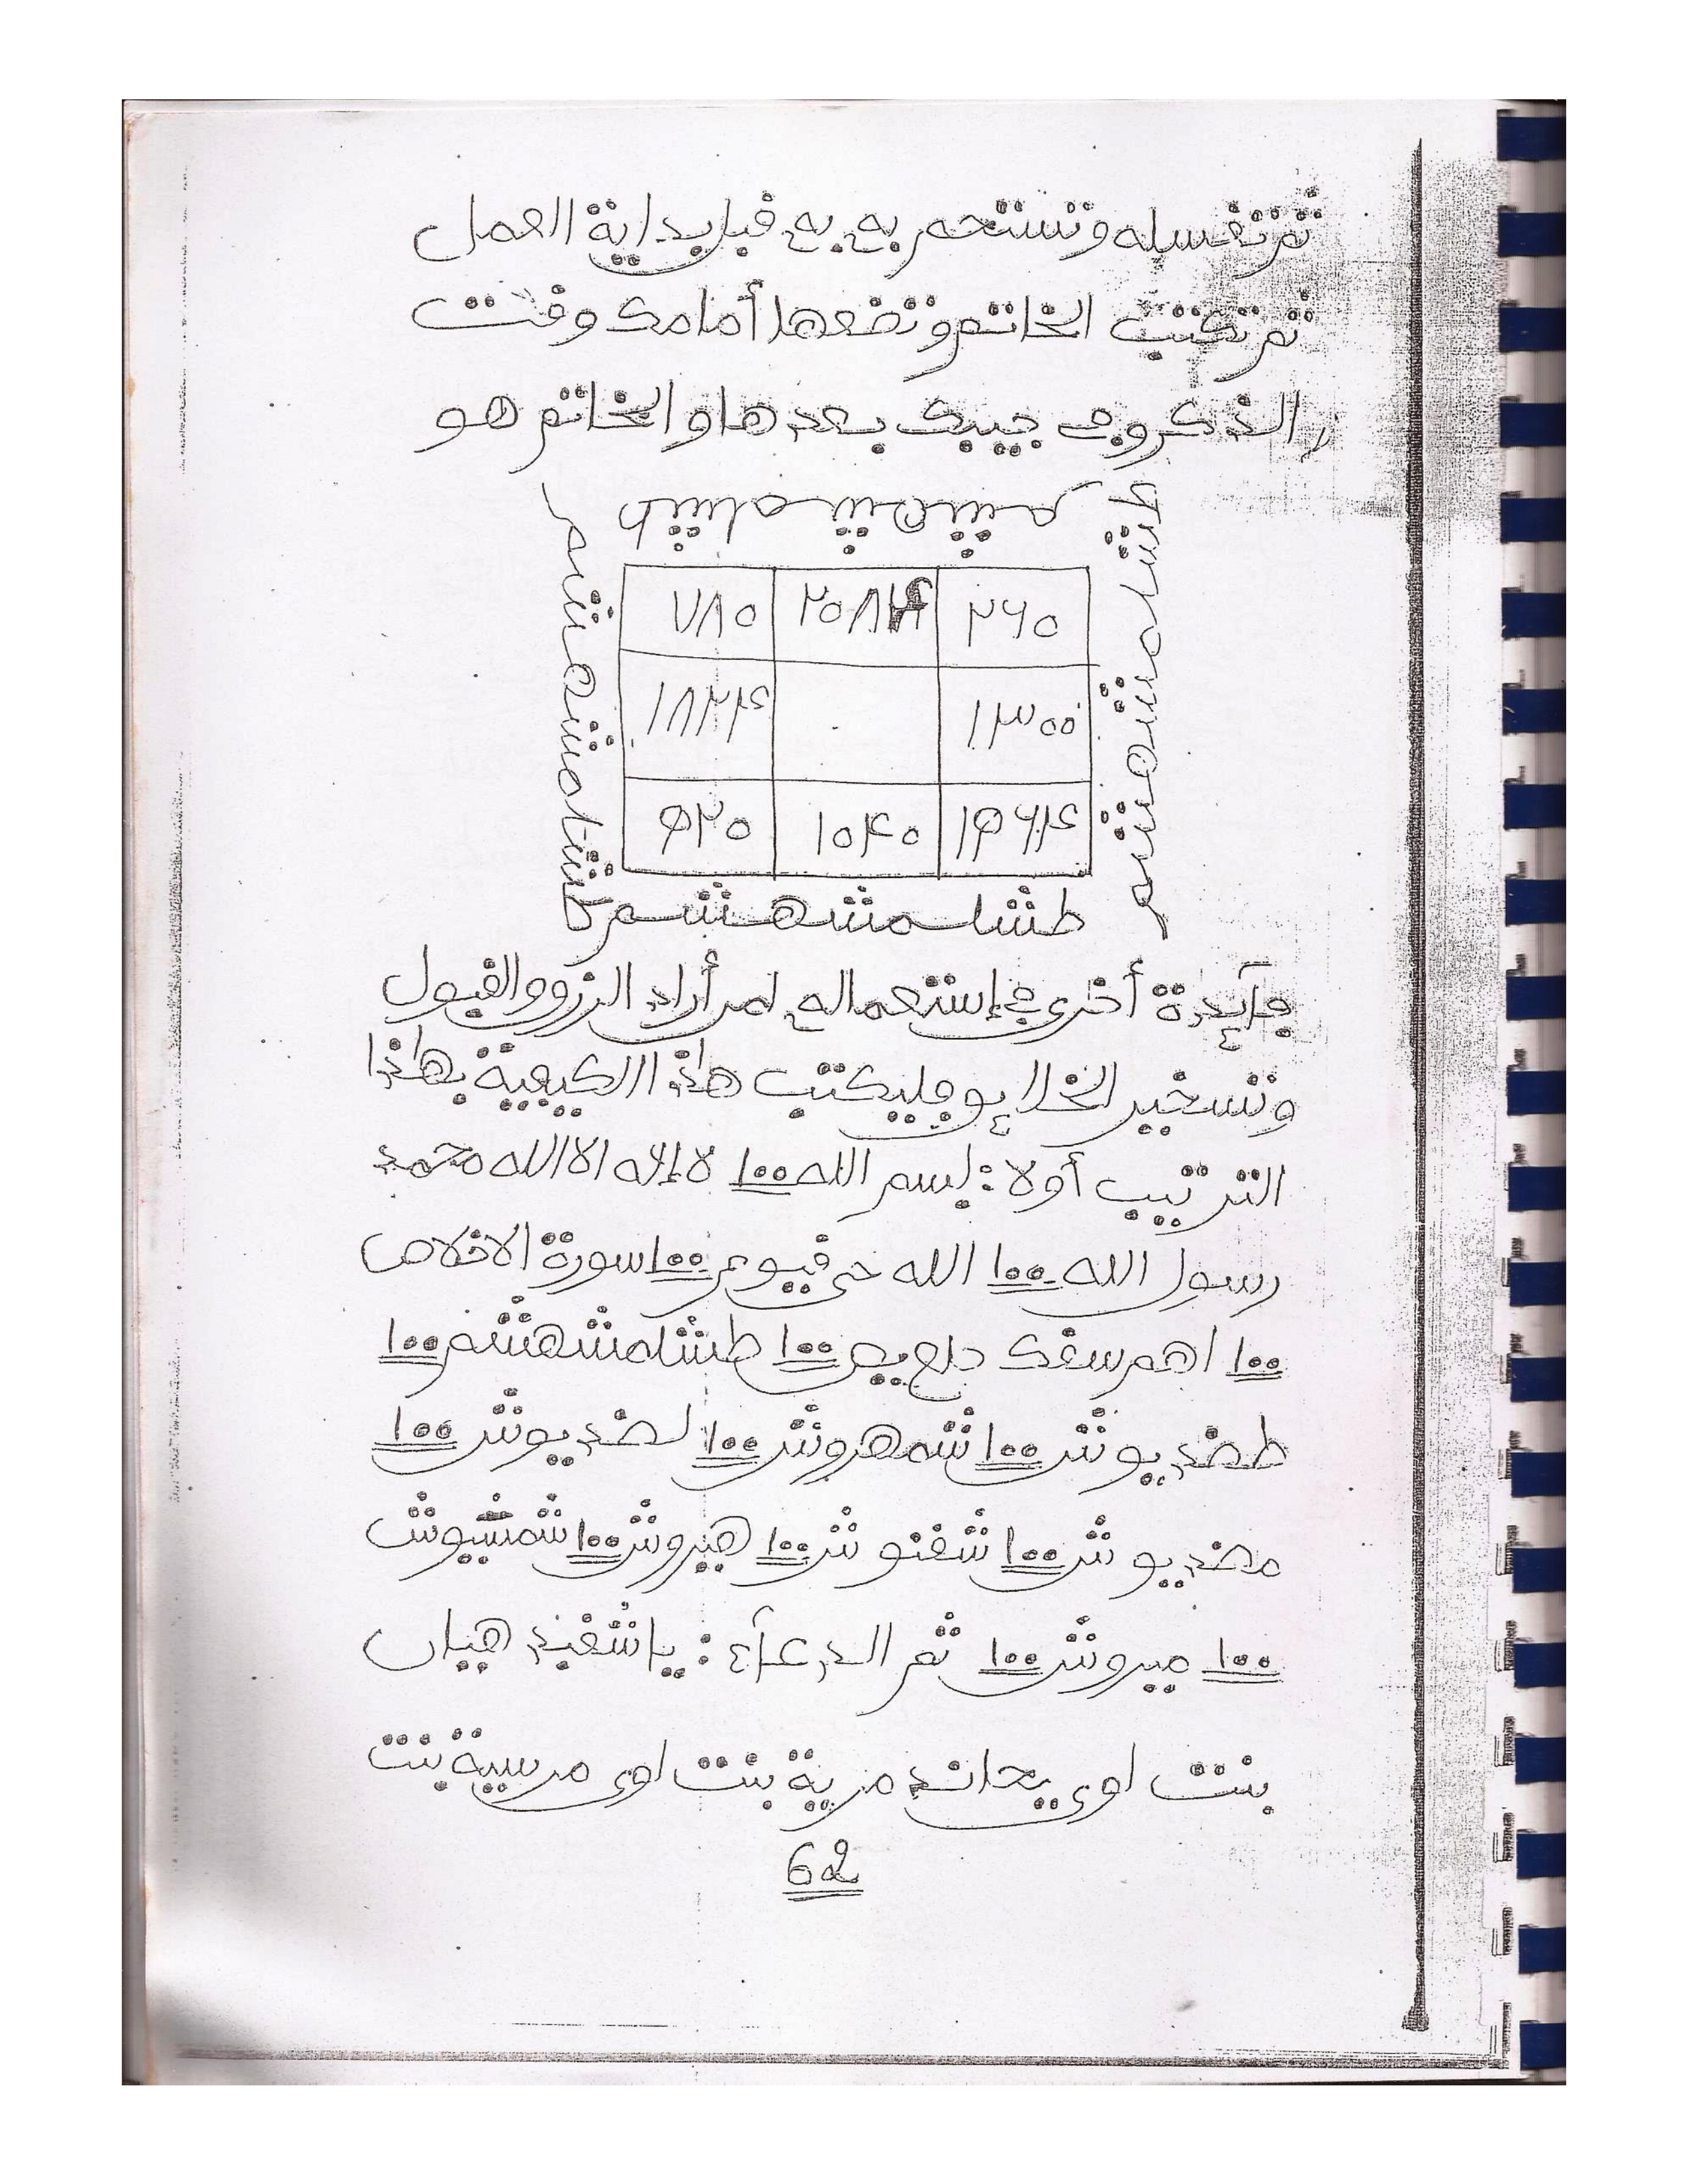 ثم تغسله وتستحم به به قبل بداية العمل
ثم تكتب الخاتم وتضعها أمامك وقت
الذكر وفي جيبك بعدها والخاتم هو
طشلمشهشم
طشلمشهشم
طشلمشهشم
٧٨٠ ٢٦٠
١٨٢٤ ١٣٠٠
٥٢٠ ١٠٤٠
طشلمشهشم
فآيدة أخرى في إستعماله لمن أراد الرزق والقبول
وتسخير الخلايق فليكتب هاذا الكيفية بهاذا
الترتيب أولا: بسم الله ١٠٠ لا إله الا الله محمد
رسول الله ١٠٠ الله حي قيوم ١٠٠ سورة الاخلاص
١٠٠ اهم سقك حلع يص ١٠٠ طشلمشهشم ١٠٠
طضديوش ١٠٠ شمهروش ١٠٠ لضديوش ١٠٠
مضديوش ١٠٠ شغنوش ١٠٠ هيروش ١٠٠ شمشيوش
١٠٠ ميروش ١٠٠ ثم الدعآء: يا هيلا
بنت لوى مزية بنت لوى مرسية بنت
62